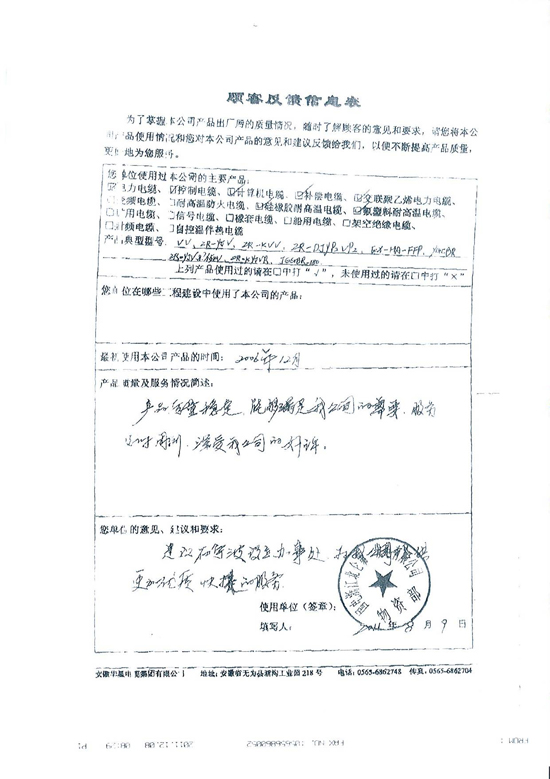 顾客反馈信息表
为了掌握本公司产品出厂后的质量情况，随时了解顾客的意见和要求，请您将本公
司产品使用情况和您对本公司产品的意见和建议反馈给我们，以便不断提高产品质量，
更好地为您服务。
您单位使用过本公司的主要产品：
☑电力电缆、☑控制电缆、☑计算机电缆、☑补偿电缆、☑交联聚乙烯电力电缆、
□变频电缆、□耐高温防火电缆、☑硅橡胶耐高温电缆、☑氟塑料耐高温电缆、
□矿用电缆、□信号电缆、□橡套电缆、□船用电缆、□架空绝缘电缆、
□射频电缆、□自控温伴热电缆
产品典型型号：VV、ZR-YJV、ZR-KVV、ZR-DJYP2VP2、
上列产品使用过的请在□中打“√”，未使用过的请在□中打“×”
您单位在哪些工程建设中使用了本公司的产品：
最初使用本公司产品的时间：2006年12月
产品质量及服务情况简述：
产品质量稳定，能够满足我公司的要求，服务
及时周到，深受我公司的好评。
您单位的意见、建议和要求：
建议在宁波设立办事处
更加优质快捷的服务
物资部
使用单位（签章）：
填写人： 2011年8月9日
安徽华星电缆集团有限公司 地址：安徽省无为县新沟工业园218号 电话：0565-6862748 传真：0565-6862704
FROM : FAX NO. :05656860052 2011.12.08 08:19 P1